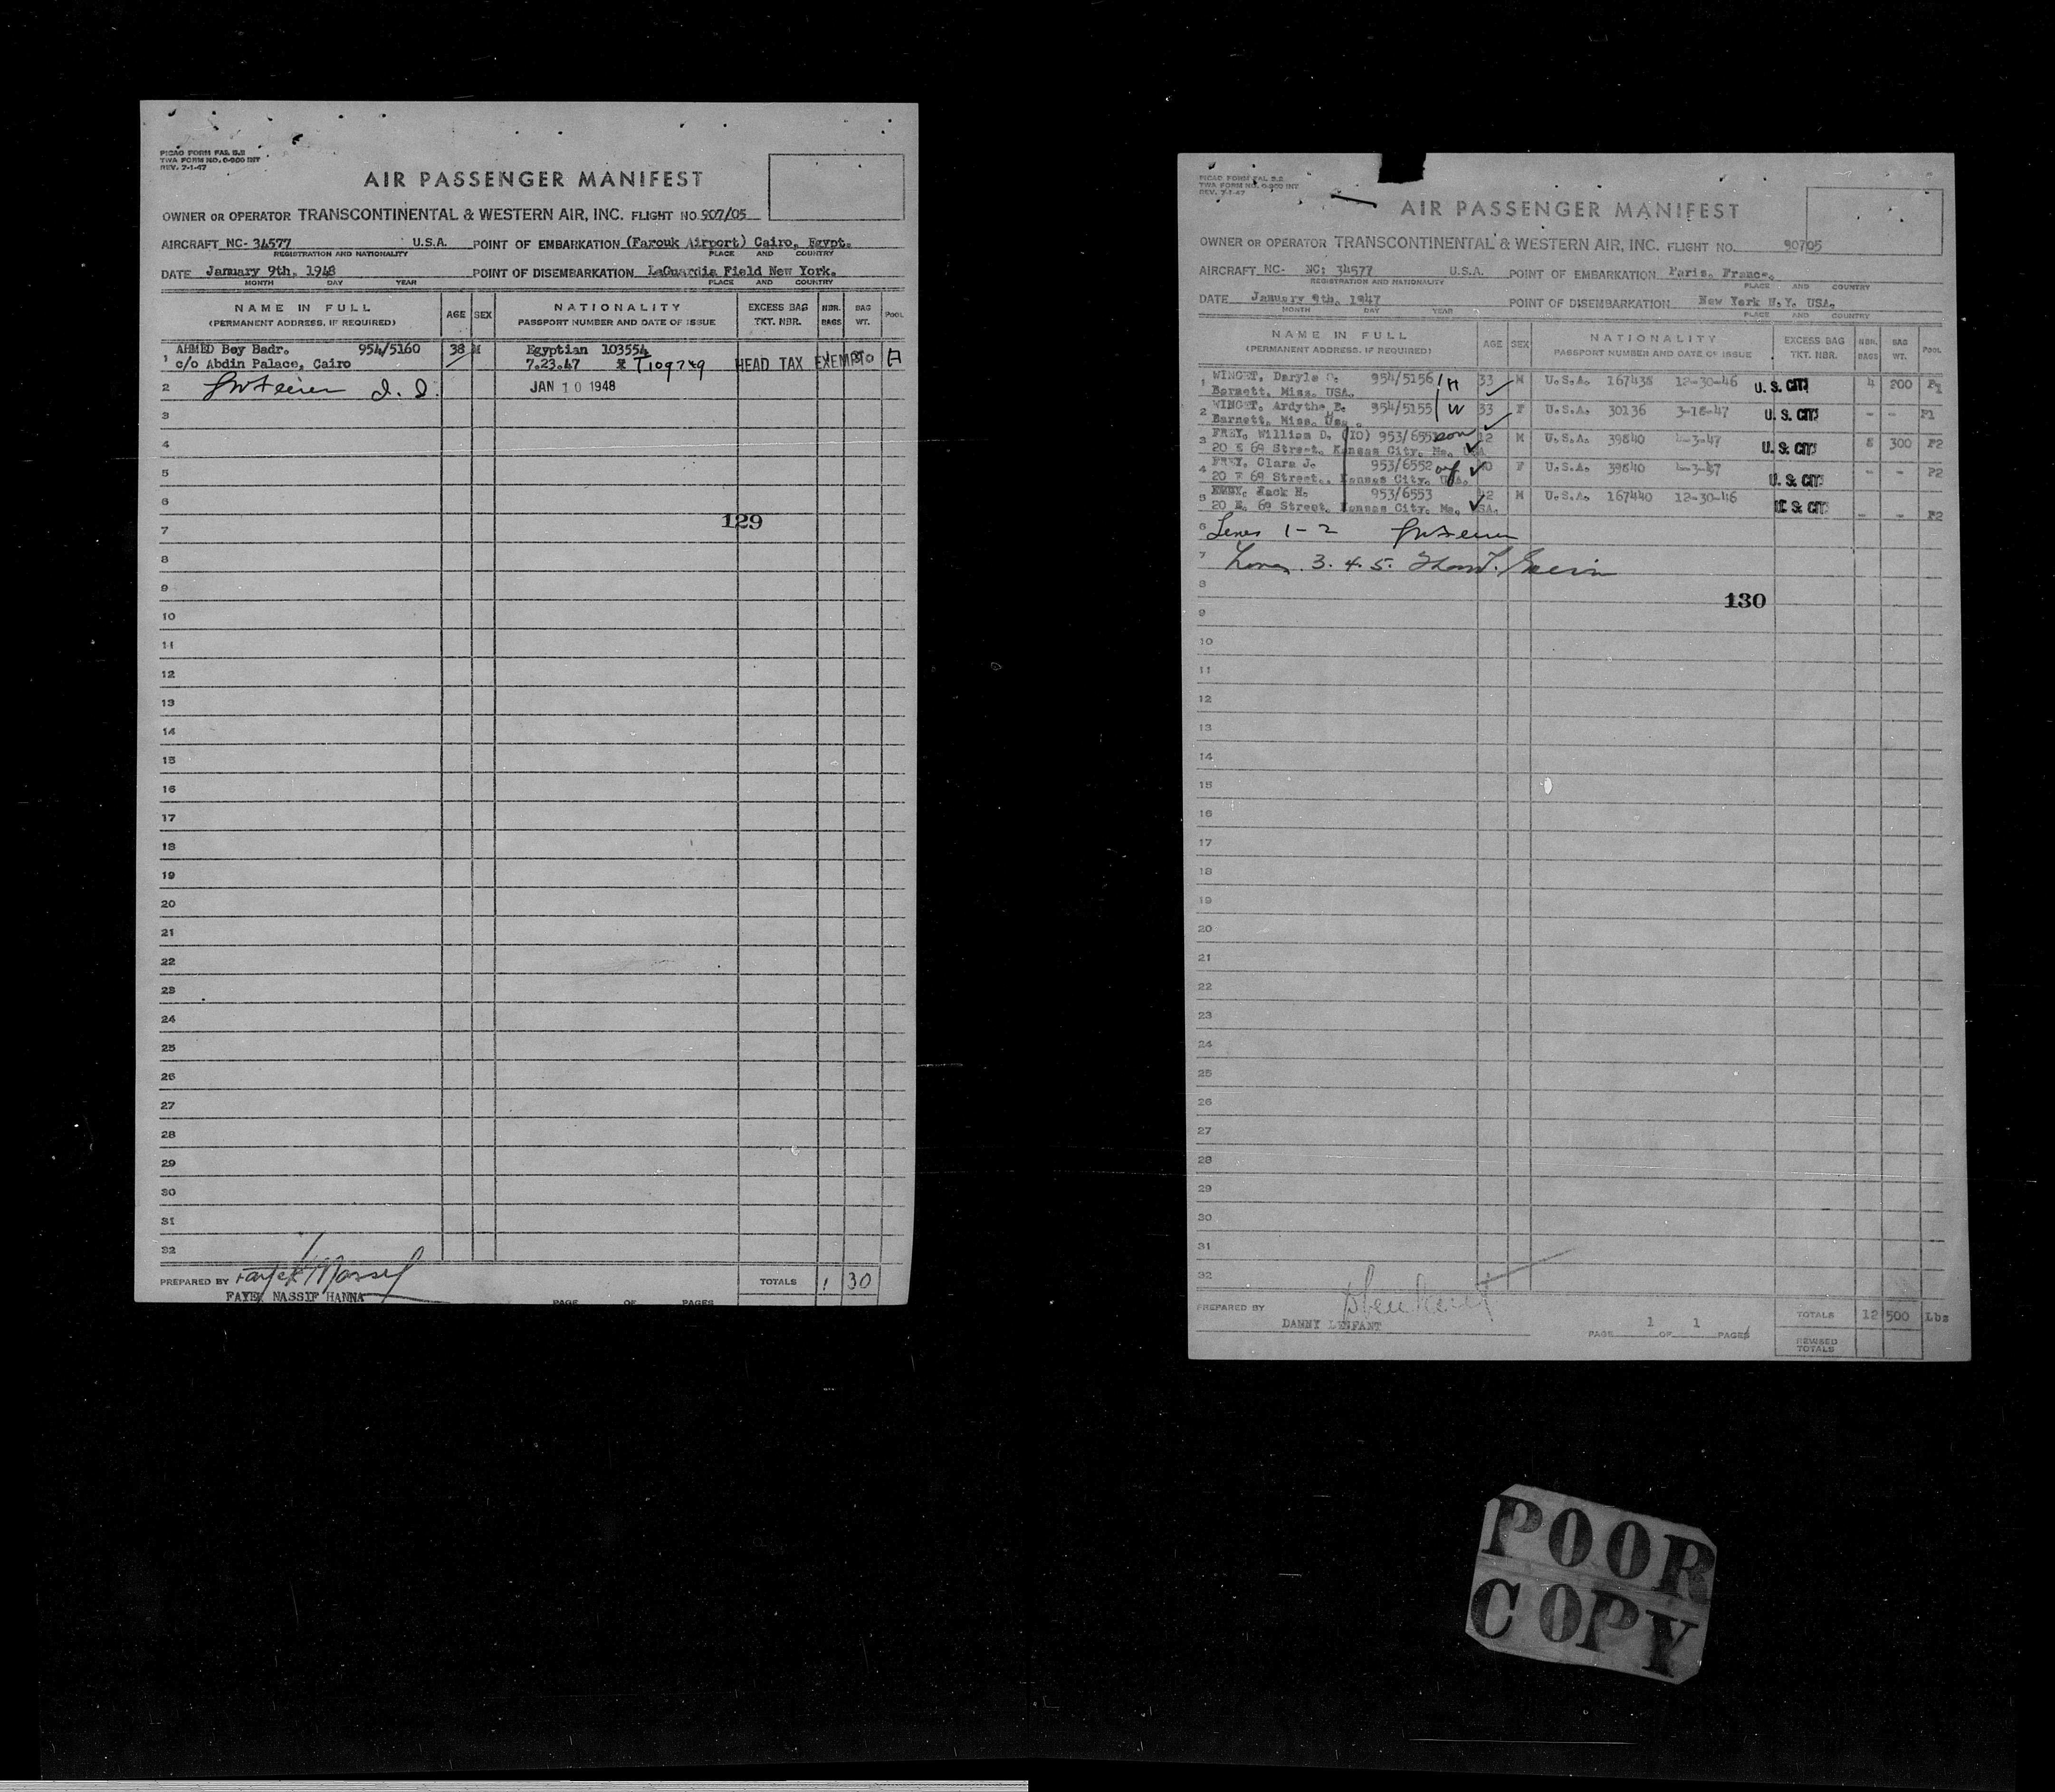 PICAO FORM FAL 2.2
TWA FORM NO. 0-900 INT
REV. 7-1-47
AIR PASSENGER MANIFEST
OWNER OR OPERATOR TRANSCONTINENTAL & WESTERN AIR, INC. FLIGHT NO. 907/05
AIRCRAFT NC- 34577 U.S.A. POINT OF EMBARKATION (Farouk Airport) Cairo, Egypt.
REGISTRATION AND NATIONALITY PLACE AND COUNTRY
DATE January 9th, 1948 POINT OF DISEMBARKATION LaGuardia Field New York.
MONTH DAY YEAR PLACE AND COUNTRY
NAME IN FULL AGE SEX NATIONALITY EXCESS BAG NBR. BAG POOL
(PERMANENT ADDRESS, IF REQUIRED) PASSPORT NUMBER AND DATE OF ISSUE TKT. NBR. BAGS WT.
1 AHMED Bey Badr. 954/5160 38 M Egyptian 103554
c/o Abdin Palace, Cairo 7.23.47 T109749 HEAD TAX EXEMPT
2 JAN 10 1948
3
4
5
6
129
7
8
9
10
11
12
13
14
15
16
17
18
19
20
21
22
23
24
25
26
27
28
29
30
31
32
PREPARED BY TOTALS 1 30
FAYEK NASSIF HANNA
PAGE OF PAGES
PICAO FORM FAL 2.2
TWA FORM NO. 0-900 INT
REV. 7-1-47
AIR PASSENGER MANIFEST
OWNER OR OPERATOR TRANSCONTINENTAL & WESTERN AIR, INC. FLIGHT NO. 90705
AIRCRAFT NC- NC: 34577 U.S.A. POINT OF EMBARKATION Paris, France.
REGISTRATION AND NATIONALITY PLACE AND COUNTRY
DATE January 9th, 1947 POINT OF DISEMBARKATION New York N.Y. USA.
MONTH DAY YEAR PLACE AND COUNTRY
NAME IN FULL AGE SEX NATIONALITY EXCESS BAG NBR. BAG POOL
(PERMANENT ADDRESS, IF REQUIRED) PASSPORT NUMBER AND DATE OF ISSUE TKT. NBR. BAGS WT.
1 WINGET, Daryle 954/5156 H 33 M U.S.A. 167438 12-30-46 U. S. CIT. 4 200 P1
Barnett, Miss. USA.
2 WINGET, Ardythe E. 954/5155 W 33 F U.S.A. 30136 3-18-47 U. S. CIT. - - P1
Barnett, Miss. Usa.
3 FREY, William D. (10) son 12 M U.S.A. 39840 U. S. CIT. 8 300 P2
20 E 69 Street, Kansas City. Mo. USA
4 FREY, Clara J. 953/6552 F U.S.A. 39840 U. S. CIT. - - P2
20 E 69 Street., Kansas City. USA.
5 Jack H. 953/6553 M U.S.A. 167440 12-30-46 U. S. CIT. - - P2
20 E. 69 Street, Kansas City. Mo. USA.
6 Lines 1-2
7 Lines 3. 4. 5.
8
130
9
10
11
12
13
14
15
16
17
18
19
20
21
22
23
24
25
26
27
28
29
30
31
32
PREPARED BY TOTALS 12 500 Lbs
DANNY LENFANT PAGE 1 OF 1 PAGES
REVISED
TOTALS
POOR
COPY